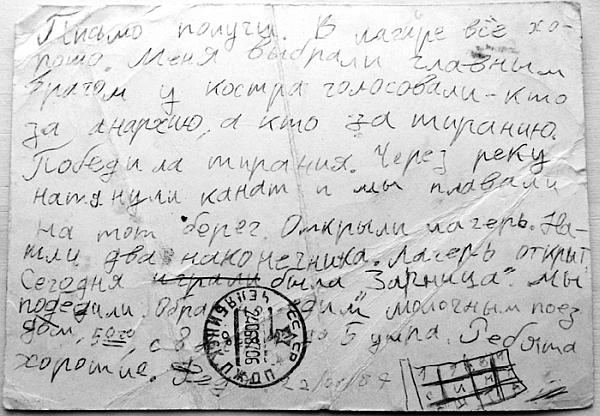 Письмо получу. В лагере всё хо-
рошо. Меня выбрали главным
врагом у костра голосовали - кто
за анархию, а кто за тиранию.
Победила тирания. Через реку
натянули канат и мы плавали
на тот берег. Открыли лагерь. На-
шли два наконечника. Лагерь открыт
Сегодня играли была Зарница" мы
победили. молочным поез
дом, 5 утра. Ребята
хорошие.
СССР
ЧЕЛЯБИНСК